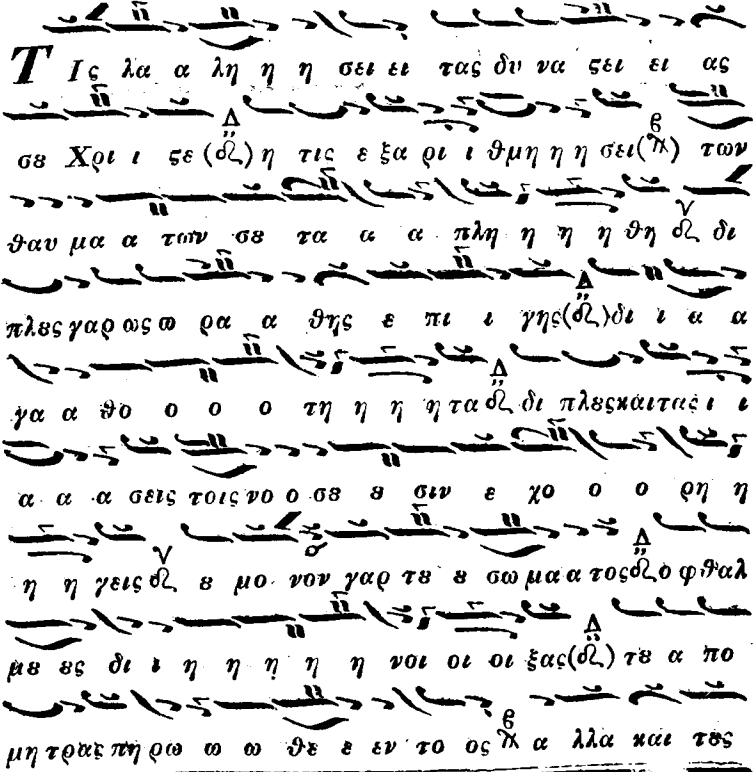 ΤΙς λα α λη η η σει ει τας δυ να ϛει ει ας
σȣ Χρι ι ϛε (Δ) η τις ε ξα ρι ι θμη η η σει( ) των
θαυ μα α των σȣ τα α α πλη η η η θη δι
πλȣς γαρ ως ω ρα α θης ε πι ι γης( )δι ι α α
γα α θο ο ο ο τη η η η τα δι πλȣς και τας ι ι
α α α σεις τοις νο ο σȣ ȣ σιν ε χο ο ο ρη η
η η γεις ȣ μο νον γαρ τȣ ȣ σω μα α τος ο φθαλ
μȣ ȣς δι ι η η η η η νοι οι οι ξας( ) τȣ α πο
μη τρας πη ρω ω ω θε ε εν το ος α λλα και τȣς